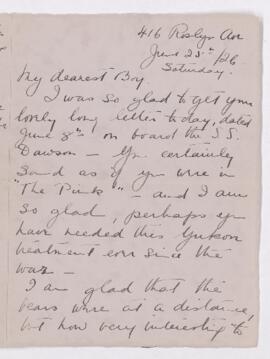 416 Roslyn Ave
June 25th /26
Saturday.
My dearest Boy.
I was so glad to get your
lovely long letter today, dated
June 8th on board the S.S.
Dawson - You certainly
sound as if you were in
"The Pink" - and I am
so glad, perhaps you
have needed this Yukon
treatment ever since the
war -
I am glad that the
bears were at a distance,
but how very interesting to